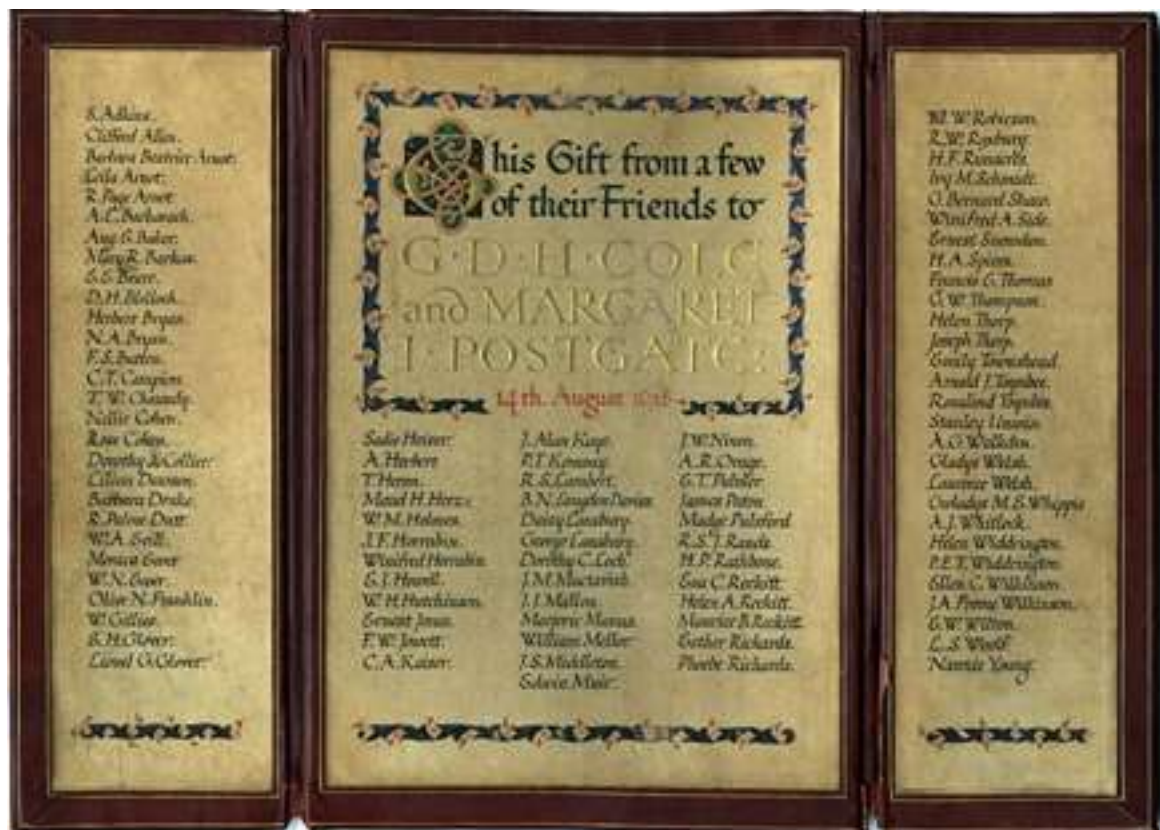 S. Adkins.
Clifford Allen.
Barbara Beatrice Arnot:
Leila Arnot:
R. Page Arnot:
A.L. Bacharach.
Aug. G. Baker.
Mary R. Barker.
D.H. Blelloch.
Herbert Bryan.
N.A. Bryan.
C.T. Campion.
T.W. Chaundy.
Nellie Cohen.
Rose Cohen.
Dorothy Collier:
Lilian Dawson.
Barbara Drake.
R. Palme Dutt.
Monica Ewer
W.N. Ewer.
Olive N. Franklin.
W. Gillies.
E.H. Glover:
Lionel G. Glover:
This Gift from a few
of their Friends to
G·D·H·COLE
and MARGARET
I·POSTGATE:
14th. August
A. Herbert
T. Heron.
Maud H. Herz.
W.M. Holmes.
J.F. Horrabin.
Winifred Horrabin.
E.J. Howell.
W.H. Hutchinson.
Ernest Jones.
F.W. Jowett.
C.A. Kaiser.
J. Alan Kaye.
R.S. Lambert.
B.N. Langdon Davies
Daisy Lansbury.
George Lansbury.
Dorothy C. Loch.
J.M. Mactavish.
J.J. Mallon.
Marjorie Manus.
William Mellor.
J.S. Middleton.
Edwin Muir.
J.W. Nixon.
A.R. Orage.
James Paton.
Madge Pulsford
H.P. Rathbone.
Eva C. Reckitt.
Helen A. Reckitt.
Maurice B. Reckitt.
Esther Richards.
Phoebe Richards.
M.W. Robieson.
R.W. Roxburgh.
Ivy M. Schmidt.
G. Bernard Shaw.
Winifred A. Side.
Ernest Snowden.
H.A. Spiers.
Francis G. Thomas
G.W. Thompson.
Helen Thorp.
Joseph Thorp.
Emily Townshend.
Arnold J. Toynbee.
Rosalind Toynbee.
Stanley Unwin.
A.G. Walkden.
Gladys Welsh.
Laurence Welsh.
Gwladys M.S. Whipple
A.J. Whitlock.
Helen Widdrington.
P.E.T. Widdrington.
Ellen C. Wilkinson.
E.W. Wilton.
L.S. Woolf.
Nannie Young.